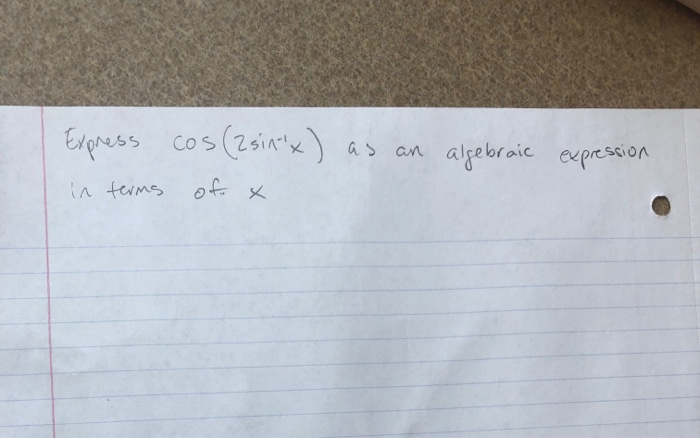 Express cos(2sin⁻¹x) as an algebraic expression
in terms of x